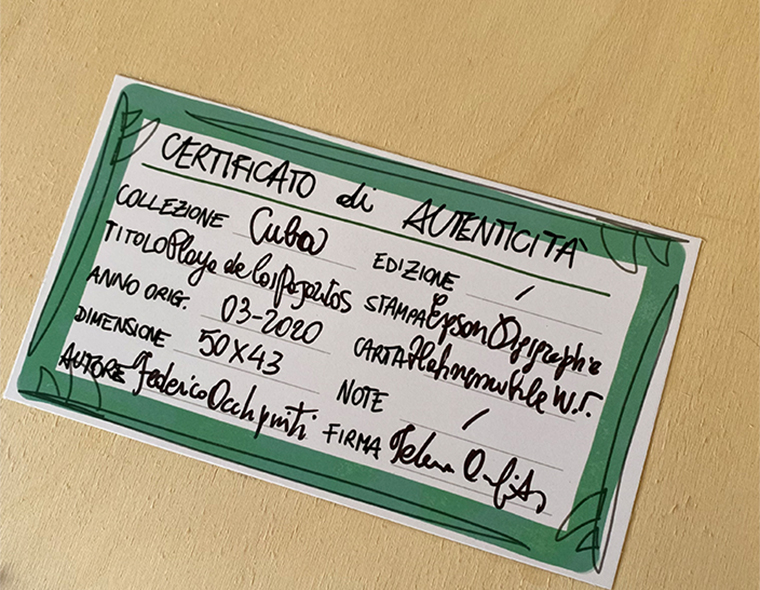 CERTIFICATO di AUTENTICITÀ
COLLEZIONE Cuba
TITOLO Playa de los
ANNO ORIG. 03-2020
DIMENSIONE 50x43
AUTORE Federico Occhipinti
EDIZIONE /
STAMPA Epson Digigraphie
CARTA Hahnemuhle W.T.
NOTE /
FIRMA